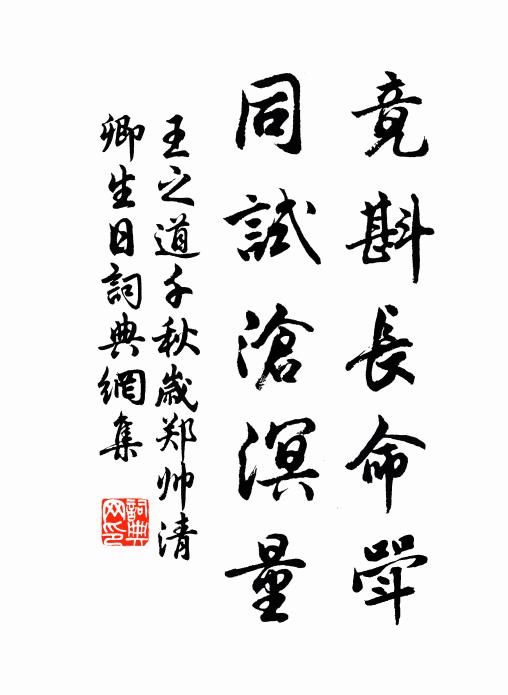 竟斟長命斝
同試滄溟量
王之道千秋歲郑帅清
卿生日詞典網集
詞典
网印